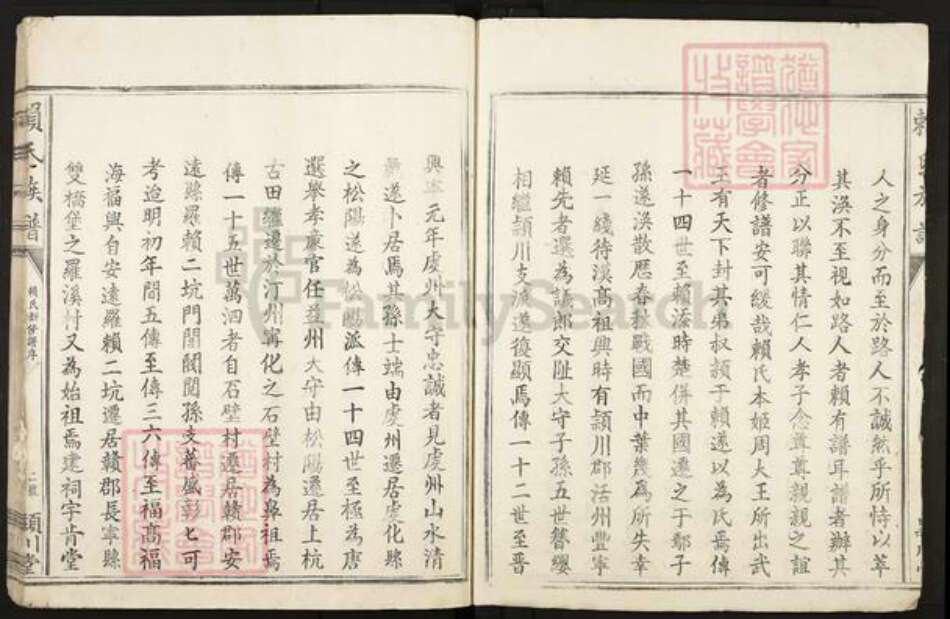 人之身分而至於路人不誠然乎所恃以萃
其渙不至視如路人者賴有譜耳譜者辦其
分正以聯其情仁人孝子念尊尊親親之誼
者修譜安可緩哉賴氏本姬周大王所出武
王有天下封其弟叔穎于賴遂以為氏焉傳
一十四世至賴添時楚併其國遷之于鄢子
孫遂渙散歷春秋戰國而中葉幾為所失幸
延一綫待漢高祖興時有頴川郡活州豐寧
賴先者選為諫郎交趾大守子孫五世簪纓
相繼頴川支派遂復顯焉傳一十二世至晉
興寧元年虔州大守忠誠者見虔州山水清
麗遂卜居焉其孫士端由虔州遷居處化縣
之松陽遂為松陽派傳一十四世至極為唐
選舉孝廉官任益州大守由松陽遷居上杭
古田繼遷於汀州寧化之石壁村為鼻祖焉
傳一十五世萬泗者自石壁村遷居贛郡安
遠縣羅賴二坑門閭閥閱孫支蕃盛彰匕可
考迨明初年間五傳至傳三六傳至福高福
海福興自安遠羅賴二坑遷居贛郡長寧縣
雙橋堡之羅溪村又為始祖焉建祠宇肯堂
賴氏族譜
賴氏新修譜序
二
頴川堂
FamilySearch